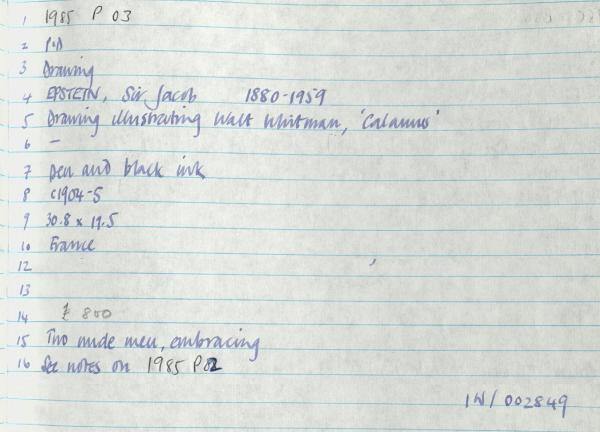 1 1985 P 03
2 P&D
3 Drawing
4 EPSTEIN, Sir Jacob 1880-1959
5 Drawing illustrating Walt Whitman, 'Calamus'
6 -
7 pen and black ink
8 c1904-5
9 30.8 x 19.5
10 France
12
13
14 £ 800
15 Two nude men, embracing
16 See notes on 1985 P02
IW/002849